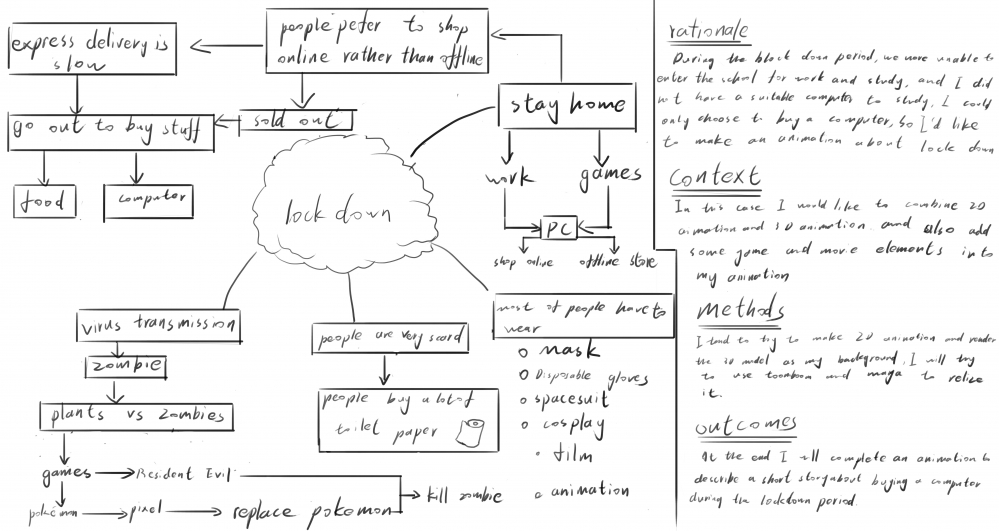 express delivery is
slow
people pefer to shop
online rather than offline
go out to buy stuff
sold out
food
computer
stay home
work
games
PC
shop online
offline store
lockdown
virus transmission
zombie
plants vs zombies
games
Resident Evil
pokemon
pixel
replace pokomon
kill zombie
people are very scard
people buy a lot of
toilet paper
most of people have to
wear
mask
Disposable gloves
spacesuit
cosplay
film
animation
rationale
During the block down period, we were unable to
enter the school for work and study, and I did
not have a suitable computer to study, I could
only choose to buy a computer, so I'd like
to make an animation about lock down
Context
In this case I would like to combine 2D
animation and 3D animation and also add
some game and movie elements into
my animation
methods
I tend to try to make 2D animation and render
the 3D model as my background, I will try
to use toonboom and maya to relize
it.
outcomes
At the end I will complete an animation to
describe a short story about buying a computer
during the lockdown period.